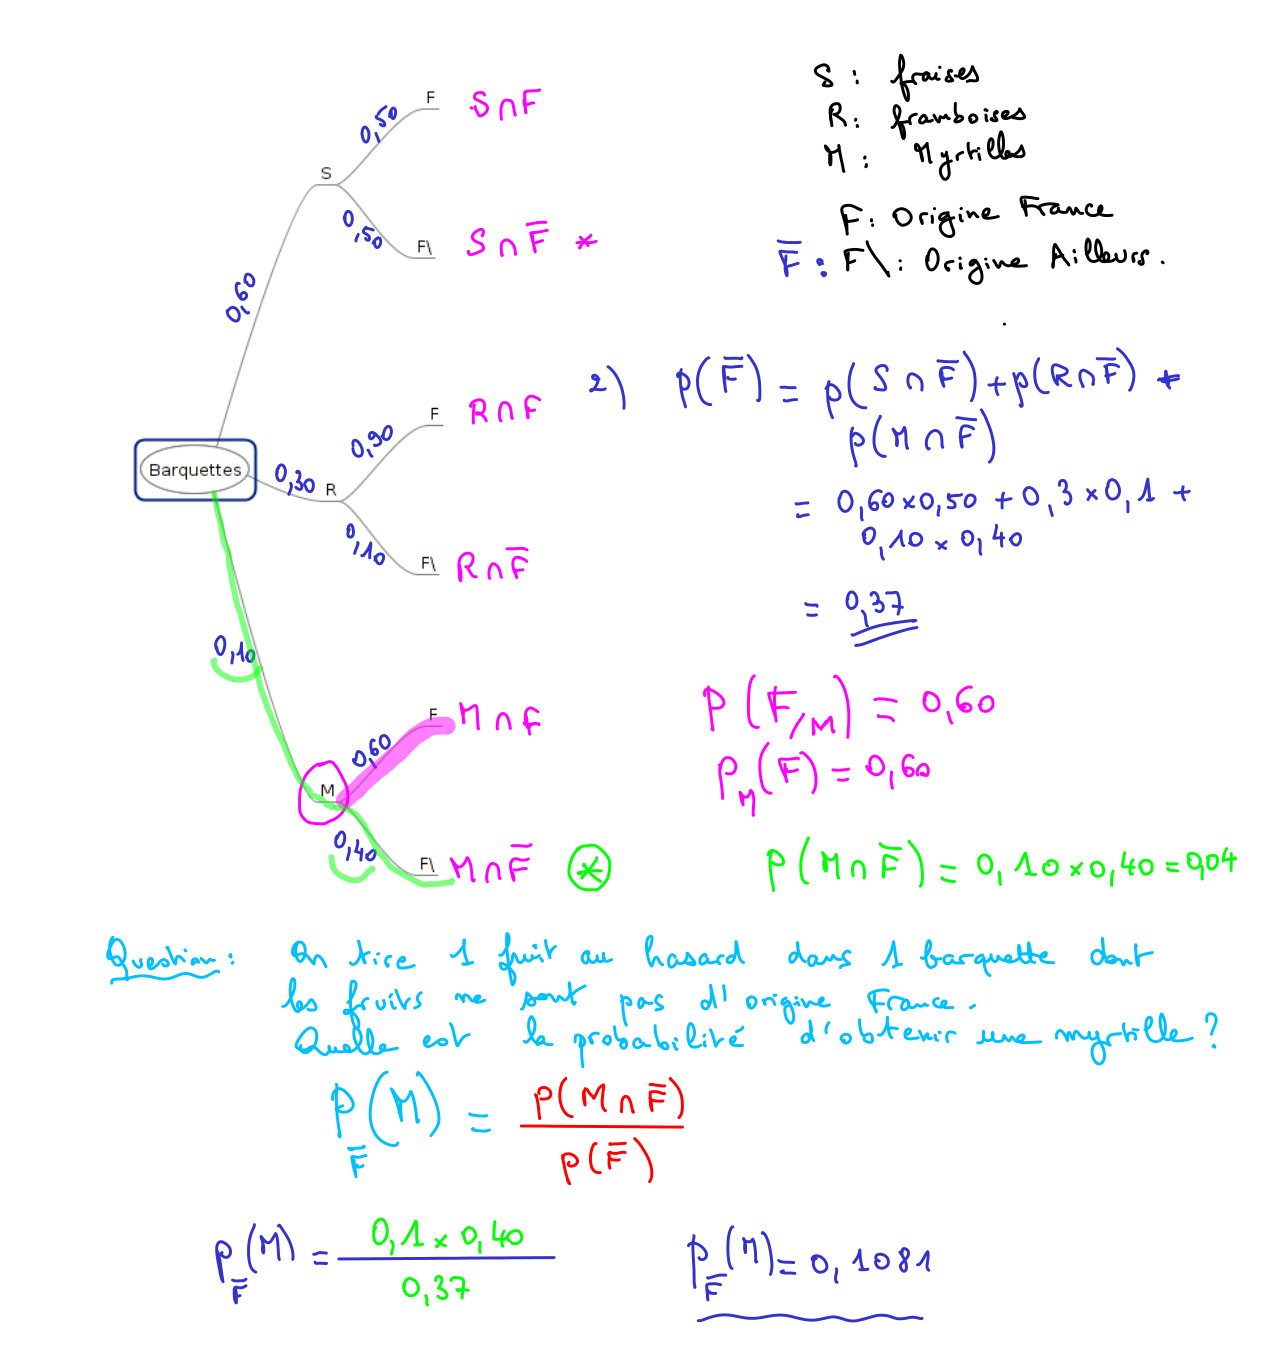 S : fraises
R : framboises
M : Myrtilles
F : Origine France
F̅ : F\ : Origine Ailleurs.
Barquettes
0,60
S
0,50
F
S∩F
0,50
F\
S∩F̅ *
0,30
R
0,90
F
R∩F
0,10
F\
R∩F̅
0,10
M
0,60
F
M∩F
0,40
F\
M∩F̅ *
2) p(F̅) = p(S∩F̅) + p(R∩F̅) +
p(M∩F̅)
= 0,60 × 0,50 + 0,3 × 0,1 +
0,10 × 0,40
= 0,37
P(F/M) = 0,60
P_M(F) = 0,60
P(M∩F̅) = 0,10 × 0,40 = 0,04
Question : On tire 1 fruit au hasard dans 1 barquette dont
les fruits ne sont pas d'origine France.
Quelle est la probabilité d'obtenir une myrtille ?
P_F̅(M) = P(M∩F̅) / p(F̅)
P_F̅(M) = 0,1 × 0,40 / 0,37
P_F̅(M) = 0,1081